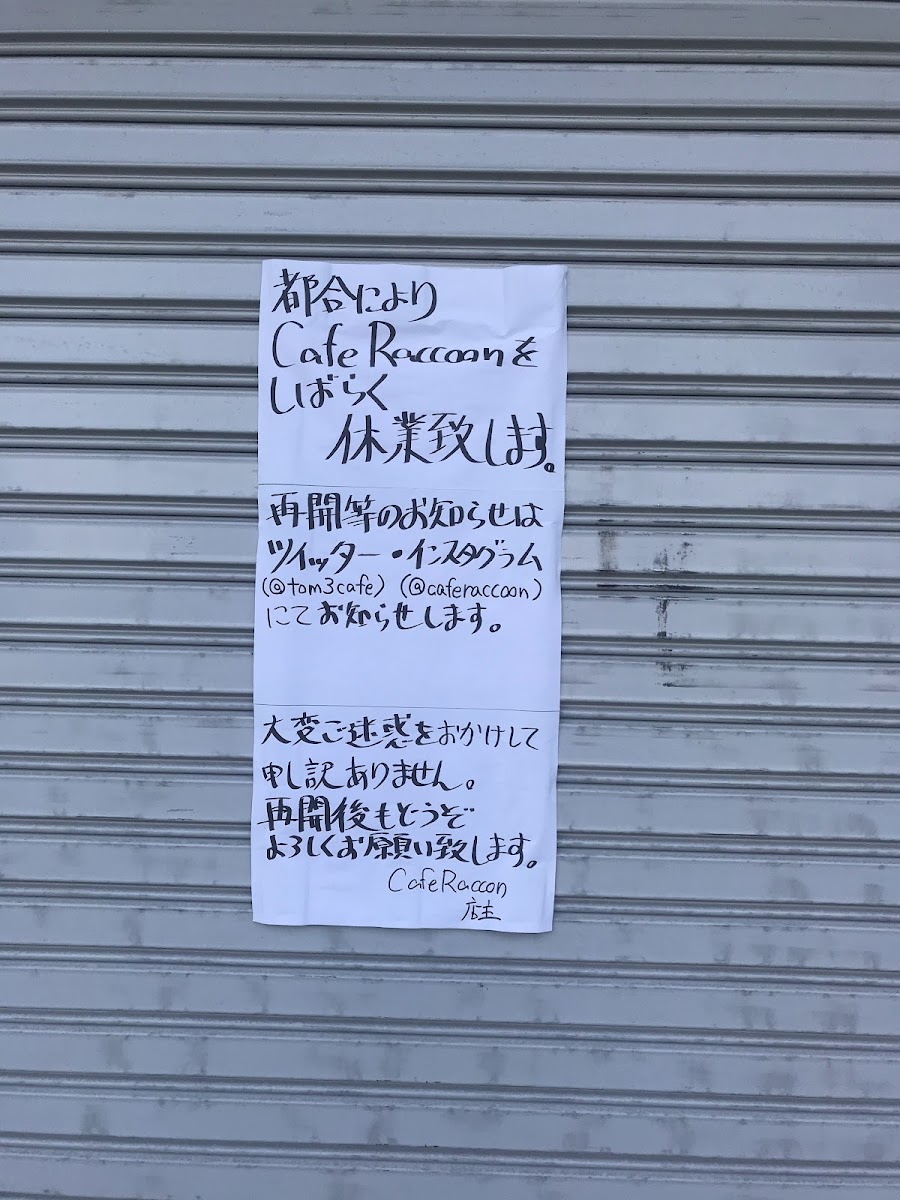 都合により
Cafe Raccoonを
しばらく
休業致します。
再開等のお知らせは
ツイッター・インスタグラム
(@tom3cafe) (@caferaccoon)
にてお知らせします。
大変ご迷惑をおかけして
申し訳ありません。
再開後もどうぞ
よろしくお願い致します。
Cafe Raccoon
店主